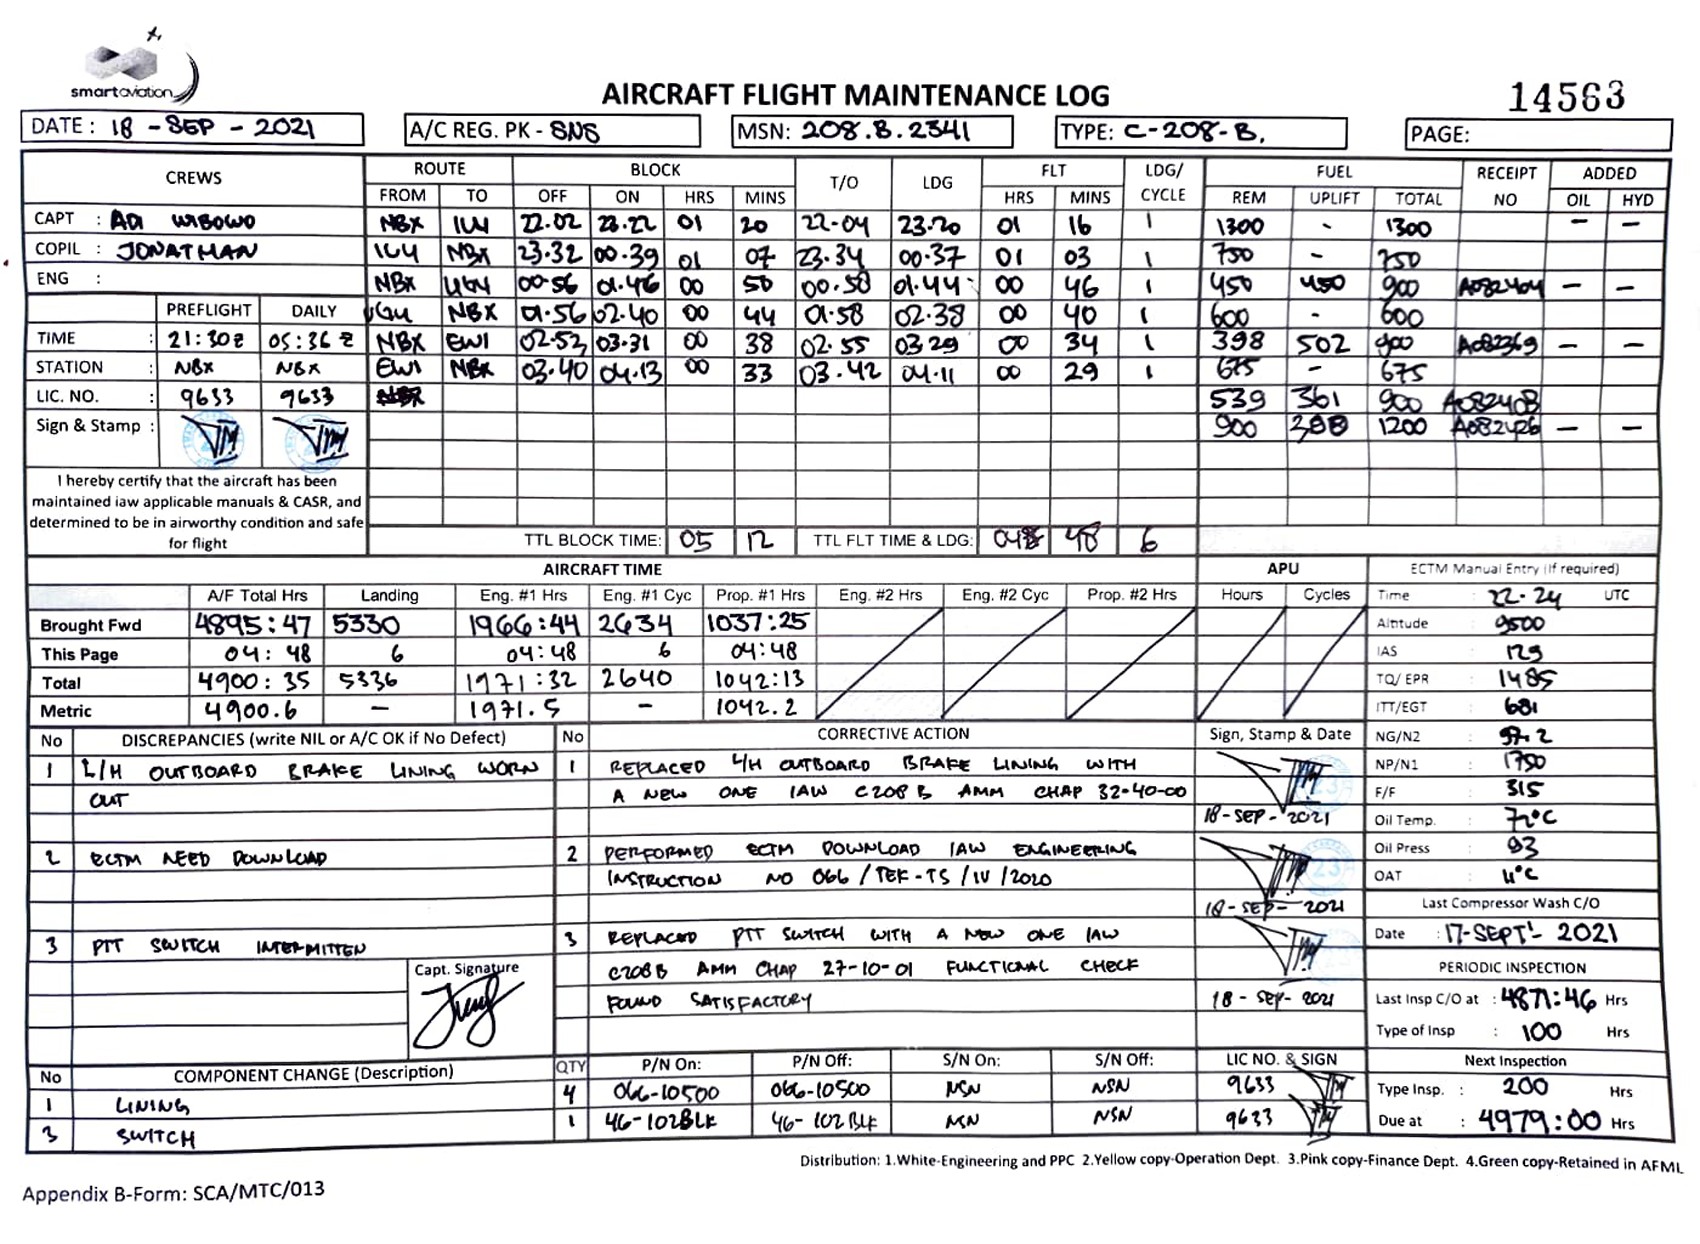 smartaviation
AIRCRAFT FLIGHT MAINTENANCE LOG
14563
DATE : 18 - SEP - 2021 A/C REG. PK - SNS MSN: 208.B.2341 TYPE: C-208-B. PAGE:
CREWS ROUTE BLOCK T/O LDG FLT LDG/CYCLE FUEL RECEIPT NO ADDED
FROM TO OFF ON HRS MINS HRS MINS REM UPLIFT TOTAL OIL HYD
CAPT : ADI WIBOWO NBX 22.02 23.22 01 20 22-04 23.20 01 16 1 1300 - 1300 - -
COPIL : JONATHAN NBX 23.32 00.39 01 07 23.34 00.37 01 03 1 750 - 750
ENG : NBX 00-56 01.46 00 50 00.58 01.44 00 46 1 450 450 900 A082404 - -
PREFLIGHT DAILY NBX 01.56 02.40 00 44 01.58 02.38 00 40 1 600 - 600
TIME : 21:30 z 05:36 z NBX EWI 02.52 03.31 00 38 02.55 03 29 00 34 1 398 502 900 A082369 - -
STATION : NBX NBX EWI NBX 03.40 04.13 00 33 03.42 04.11 00 29 1 675 - 675
LIC. NO. : 9633 9633 539 361 900 A082408
Sign & Stamp : 900 1200 A082426 - -
I hereby certify that the aircraft has been
maintained iaw applicable manuals & CASR, and
determined to be in airworthy condition and safe
for flight
TTL BLOCK TIME: 05 12 TTL FLT TIME & LDG: 48 6
AIRCRAFT TIME APU ECTM Manual Entry (If required)
A/F Total Hrs Landing Eng. #1 Hrs Eng. #1 Cyc Prop. #1 Hrs Eng. #2 Hrs Eng. #2 Cyc Prop. #2 Hrs Hours Cycles Time : 22.24 UTC
Brought Fwd 4895:47 5330 1966:44 2634 1037:25 Altitude : 9500
This Page 04:48 6 04:48 6 04:48 IAS : 129
Total 4900:35 5336 1971:32 2640 1042:13 TQ/ EPR : 1485
Metric 4900.6 - 1971.5 - 1042.2 ITT/EGT : 681
No DISCREPANCIES (write NIL or A/C OK if No Defect) No CORRECTIVE ACTION Sign, Stamp & Date NG/N2 : 97.2
1 L/H OUTBOARD BRAKE LINING WORN 1 REPLACED L/H OUTBOARD BRAKE LINING WITH NP/N1 : 1750
OUT A NEW ONE IAW C208 B AMM CHAP 32-40-00 F/F : 315
18-SEP-2021 Oil Temp. : 72°C
2 ECTM NEED DOWNLOAD 2 PERFORMED ECTM DOWNLOAD IAW ENGINEERING Oil Press : 93
INSTRUCTION NO 066 / TEK-TS / IV / 2020 OAT : 11°C
18-SEP-2021 Last Compressor Wash C/O
3 PTT SWITCH INTERMITTEN 3 REPLACED PTT SWITCH WITH A NEW ONE IAW Date : 17-SEPT'- 2021
Capt. Signature C208 B AMM CHAP 27-10-01 FUNCTIONAL CHECK PERIODIC INSPECTION
FOUND SATISFACTORY 18 - SEP- 2021 Last Insp C/O at : 4871:46 Hrs
Type of Insp : 100 Hrs
No COMPONENT CHANGE (Description) QTY P/N On: P/N Off: S/N On: S/N Off: LIC NO. & SIGN Next Inspection
1 LINING 4 066-10500 066-10500 NSN NSN 9633 Type Insp. : 200 Hrs
3 SWITCH 1 46-102BLK 46-102BLK NSN NSN 9633 Due at : 4979:00 Hrs
Distribution: 1.White-Engineering and PPC 2.Yellow copy-Operation Dept. 3.Pink copy-Finance Dept. 4.Green copy-Retained in AFML
Appendix B-Form: SCA/MTC/013